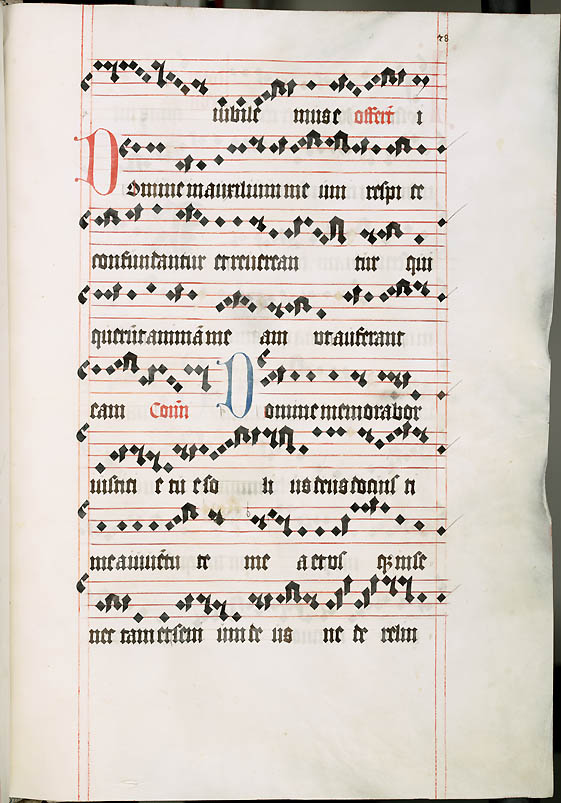 iubile mus e offert i
Domine in auxilium me um respi ce
confundantur et reverean tur qui
querūt animā me am ut auferant
eam Com̄ Domine memorabor
iusticie tu e so li us deus docuis ti
me a iuuētu te me a et vsqz in se
nec tam et seni um de us ne de relin